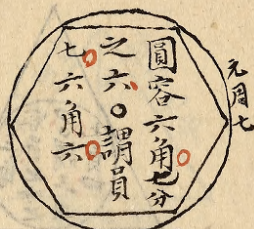 圓容六角七分
之六〇謂員
七六角六
元周七